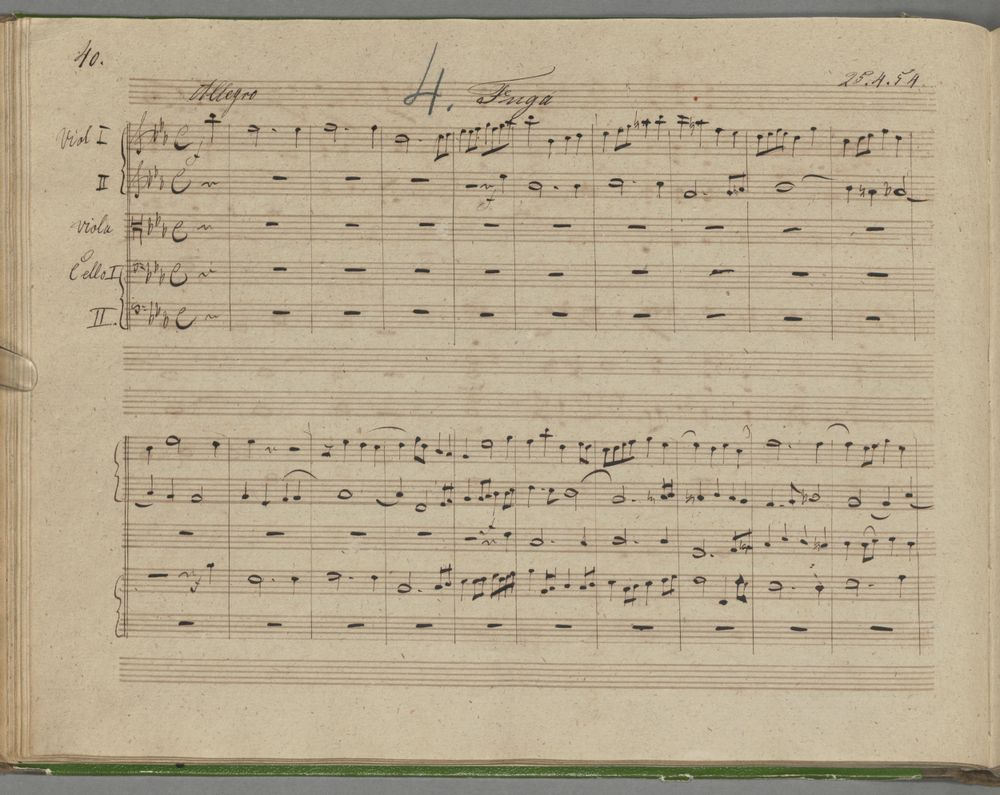 40.
Allegro 4. Fuga 25.4.54.
Viol I
f
II
f
Viola
Cello I
II.
f
f